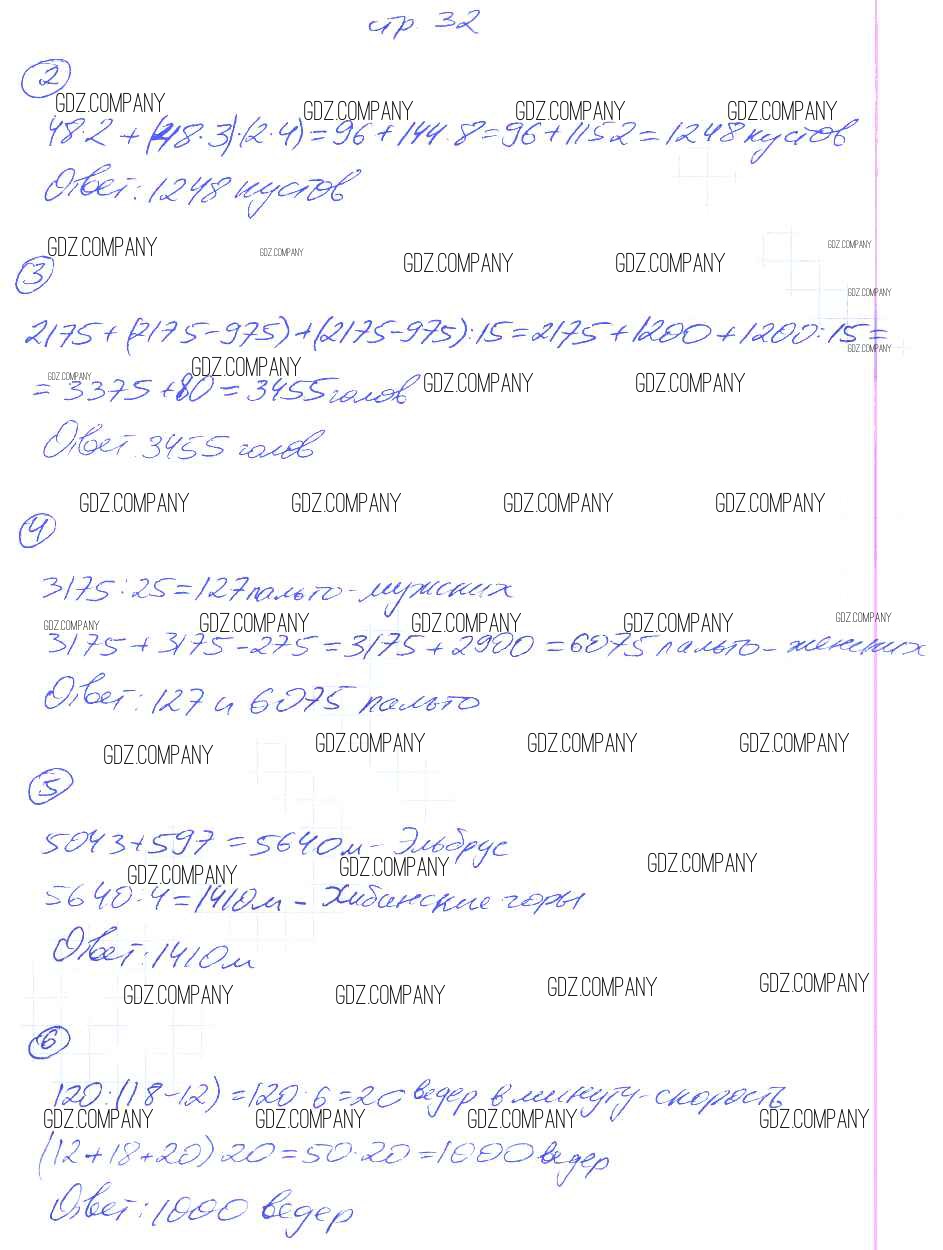 стр. 32
2
GDZ.COMPANY GDZ.COMPANY GDZ.COMPANY GDZ.COMPANY
48·2 + (48·3)·(2·4) = 96 + 144·8 = 96 + 1152 = 1248 кустов
Ответ: 1248 кустов
GDZ.COMPANY GDZ.COMPANY GDZ.COMPANY GDZ.COMPANY GDZ.COMPANY
3
GDZ.COMPANY
2175 + (2175 - 975) + (2175 - 975) : 15 = 2175 + 1200 + 1200 : 15 =
GDZ.COMPANY GDZ.COMPANY GDZ.COMPANY GDZ.COMPANY GDZ.COMPANY
= 3375 + 80 = 3455 голов
Ответ. 3455 голов
GDZ.COMPANY GDZ.COMPANY GDZ.COMPANY GDZ.COMPANY
4
3175 : 25 = 127 пальто - мужских
GDZ.COMPANY GDZ.COMPANY GDZ.COMPANY GDZ.COMPANY GDZ.COMPANY
3175 + 3175 - 275 = 3175 + 2900 = 6075 пальто - женских
Ответ: 127 и 6075 пальто
GDZ.COMPANY GDZ.COMPANY GDZ.COMPANY GDZ.COMPANY
5
5043 + 597 = 5640 м - Эльбрус
GDZ.COMPANY GDZ.COMPANY GDZ.COMPANY
5640 : 4 = 1410 м - Хибинские горы
Ответ: 1410 м
GDZ.COMPANY GDZ.COMPANY GDZ.COMPANY GDZ.COMPANY
6
120 : (18 - 12) = 120 : 6 = 20 ведер в минуту - скорость
GDZ.COMPANY GDZ.COMPANY GDZ.COMPANY GDZ.COMPANY
(12 + 18 + 20)·20 = 50·20 = 1000 ведер
Ответ: 1000 ведер